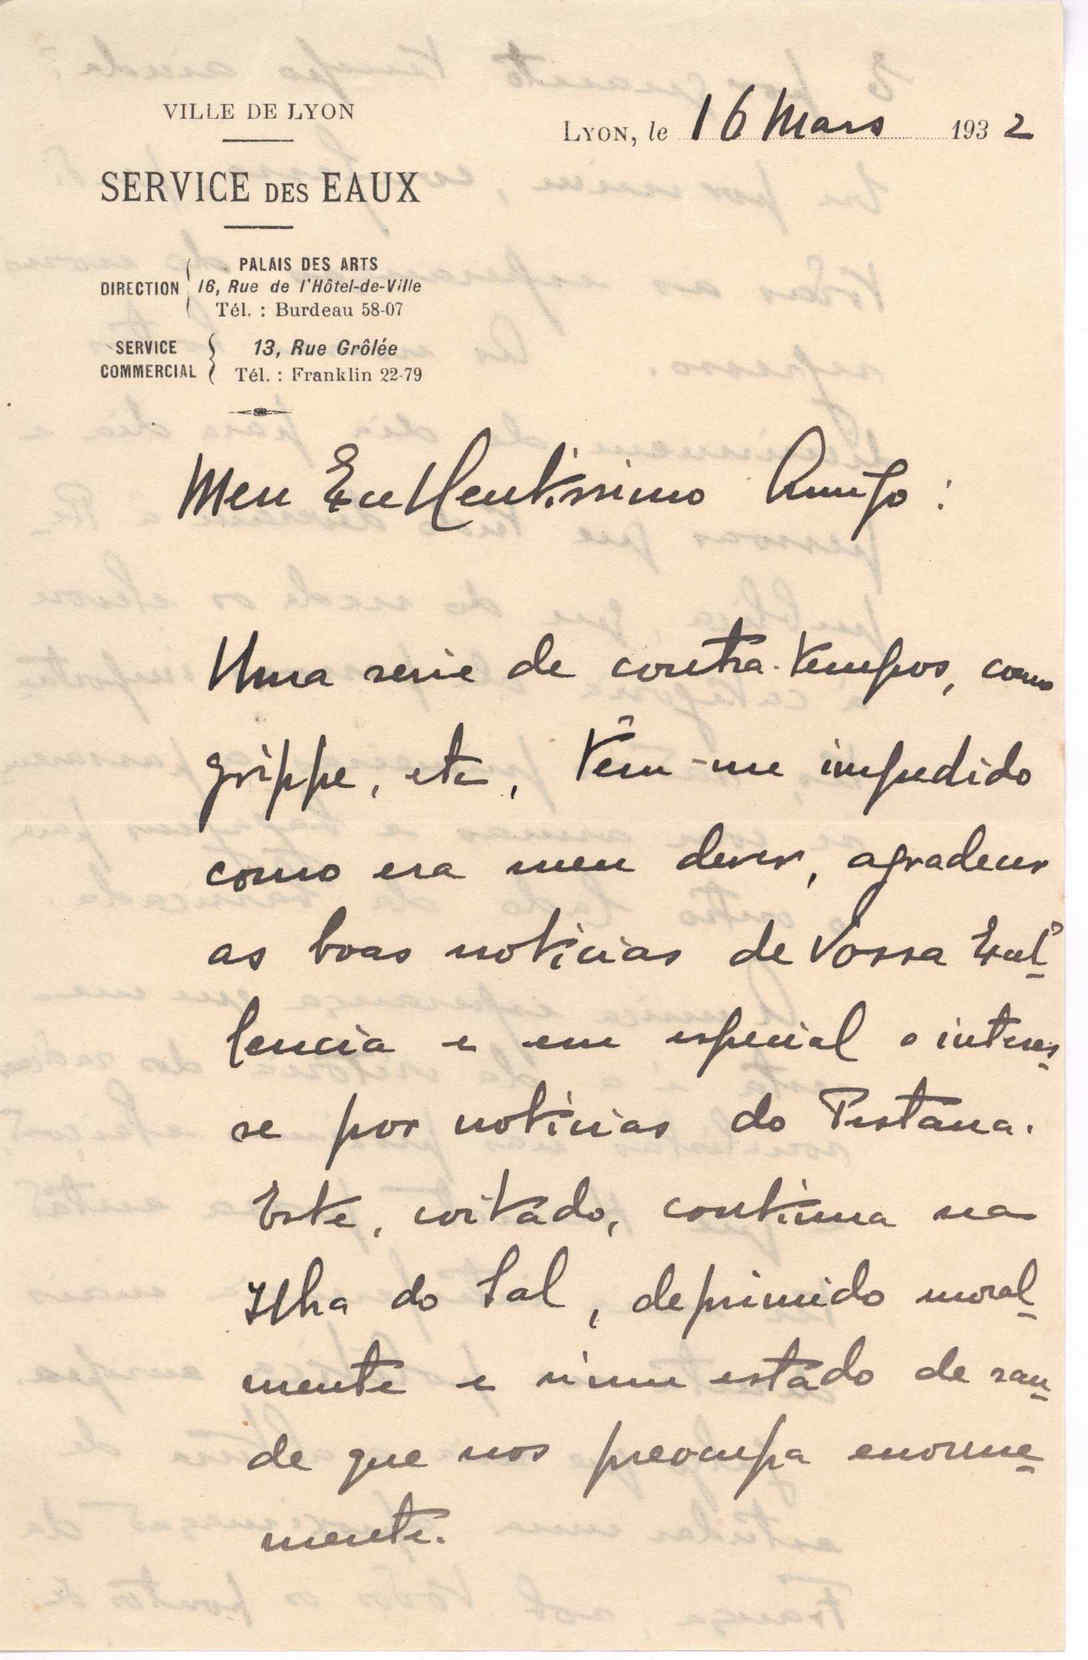 VILLE DE LYON
SERVICE DES EAUX
DIRECTION
PALAIS DES ARTS
16, Rue de l'Hôtel-de-Ville
Tél. : Burdeau 58-07
SERVICE COMMERCIAL
13, Rue Grôlée
Tél. : Franklin 22-79
LYON, le 16 Mars 1932
Meu Excellentissimo Amigo :
Uma serie de contra-tempos, como
grippe, etc, têm-me impedido
como era meu dever, agradecer
as boas noticias de Vossa Excel-
lencia e em especial o interes-
se por noticias do Pestana.
Este, coitado, continua na
Ilha do Sal, deprimido moral-
mente e n'um estado de sau-
de que nos preocupa enorme-
mente.